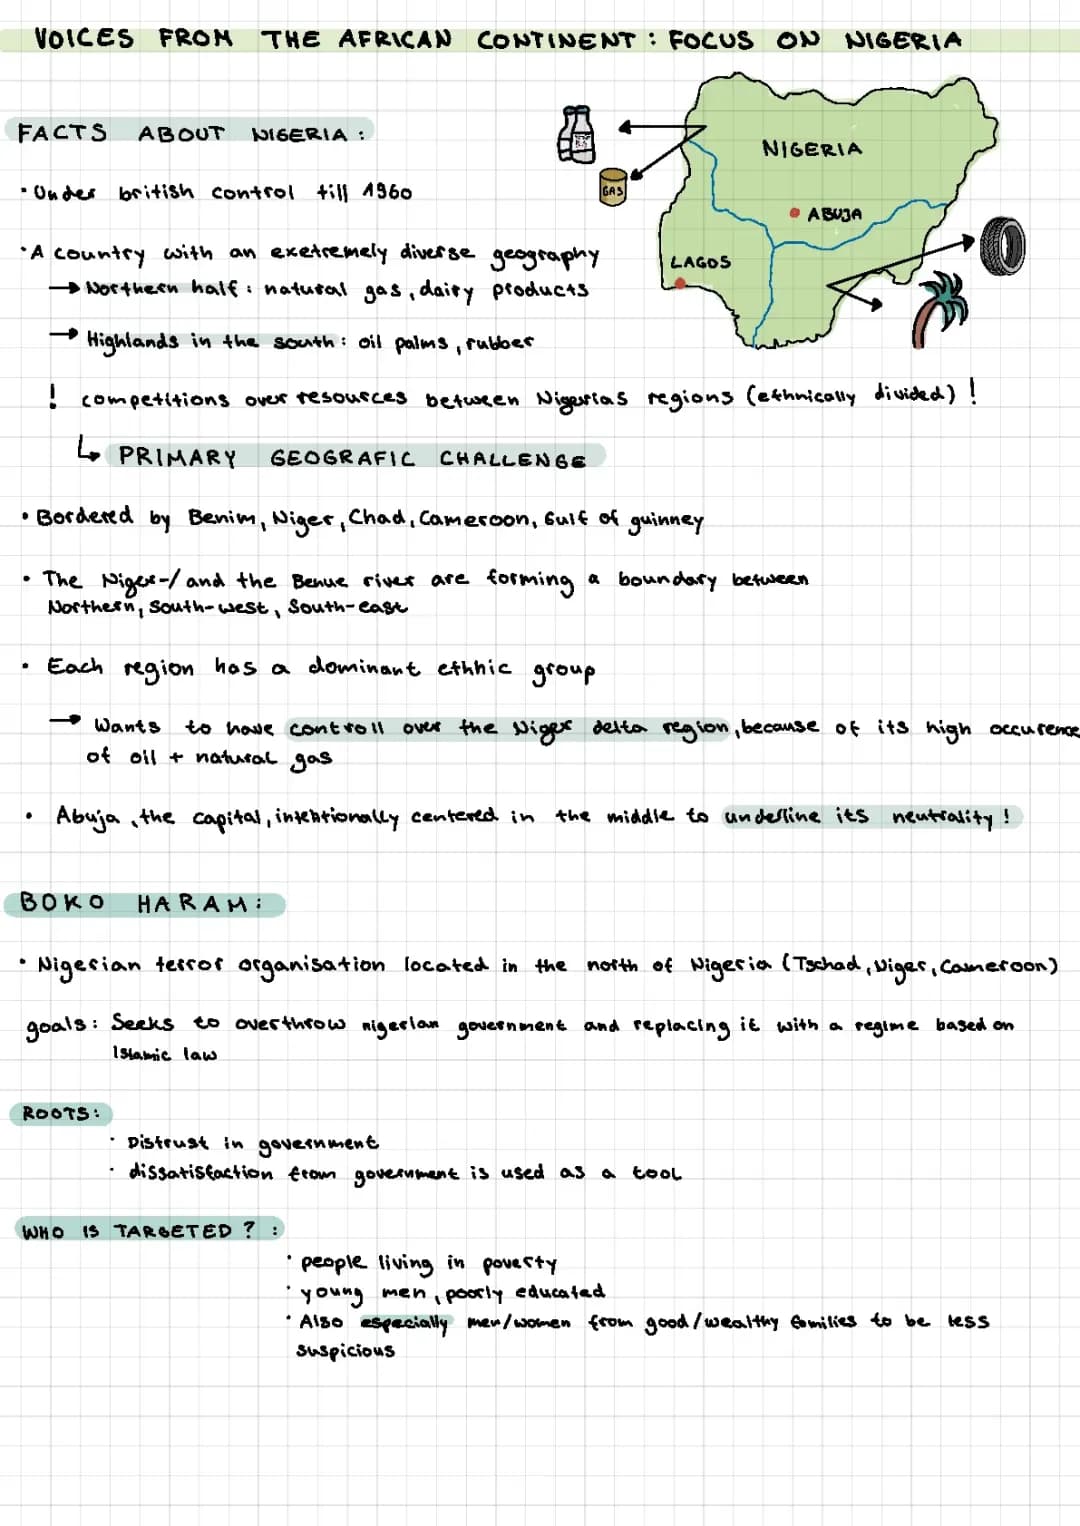 VOICES FROM THE AFRICAN CONTINENT : FOCUS ON NIGERIA
FACTS ABOUT NIGERIA :
• Under british control till 1960
• A country with an exetremely diverse geography
→ Northern half : natural gas, dairy products
→ Highlands in the south : oil palms, rubber
GAS
NIGERIA
ABUJA
LAGOS
! competitions over resources between Nigerias regions (ethnically divided) !
↳ PRIMARY GEOGRAFIC CHALLENGE
• Bordered by Benim, Niger, Chad, Cameroon, Gulf of guinney
• The Niger-/ and the Benue river are forming a boundary between
Northern, South-west, South-east
• Each region has a dominant ethhic group
→ Wants to have controll over the Niger delta region, because of its high occurence
of oil + natural gas
• Abuja, the capital, intehtionally centered in the middle to underline its neutrality !
BOKO HARAM :
• Nigerian terror organisation located in the north of Nigeria (Tschad, Niger, Cameroon)
goals : Seeks to overthrow nigerian government and replacing it with a regime based on
Islamic law
ROOTS :
• Distrust in government
• dissatisfaction from government is used as a tool
WHO IS TARGETED ? :
• people living in poverty
• young men, poorly educated
• Also especially men/women from good/wealthy families to be less
suspicious